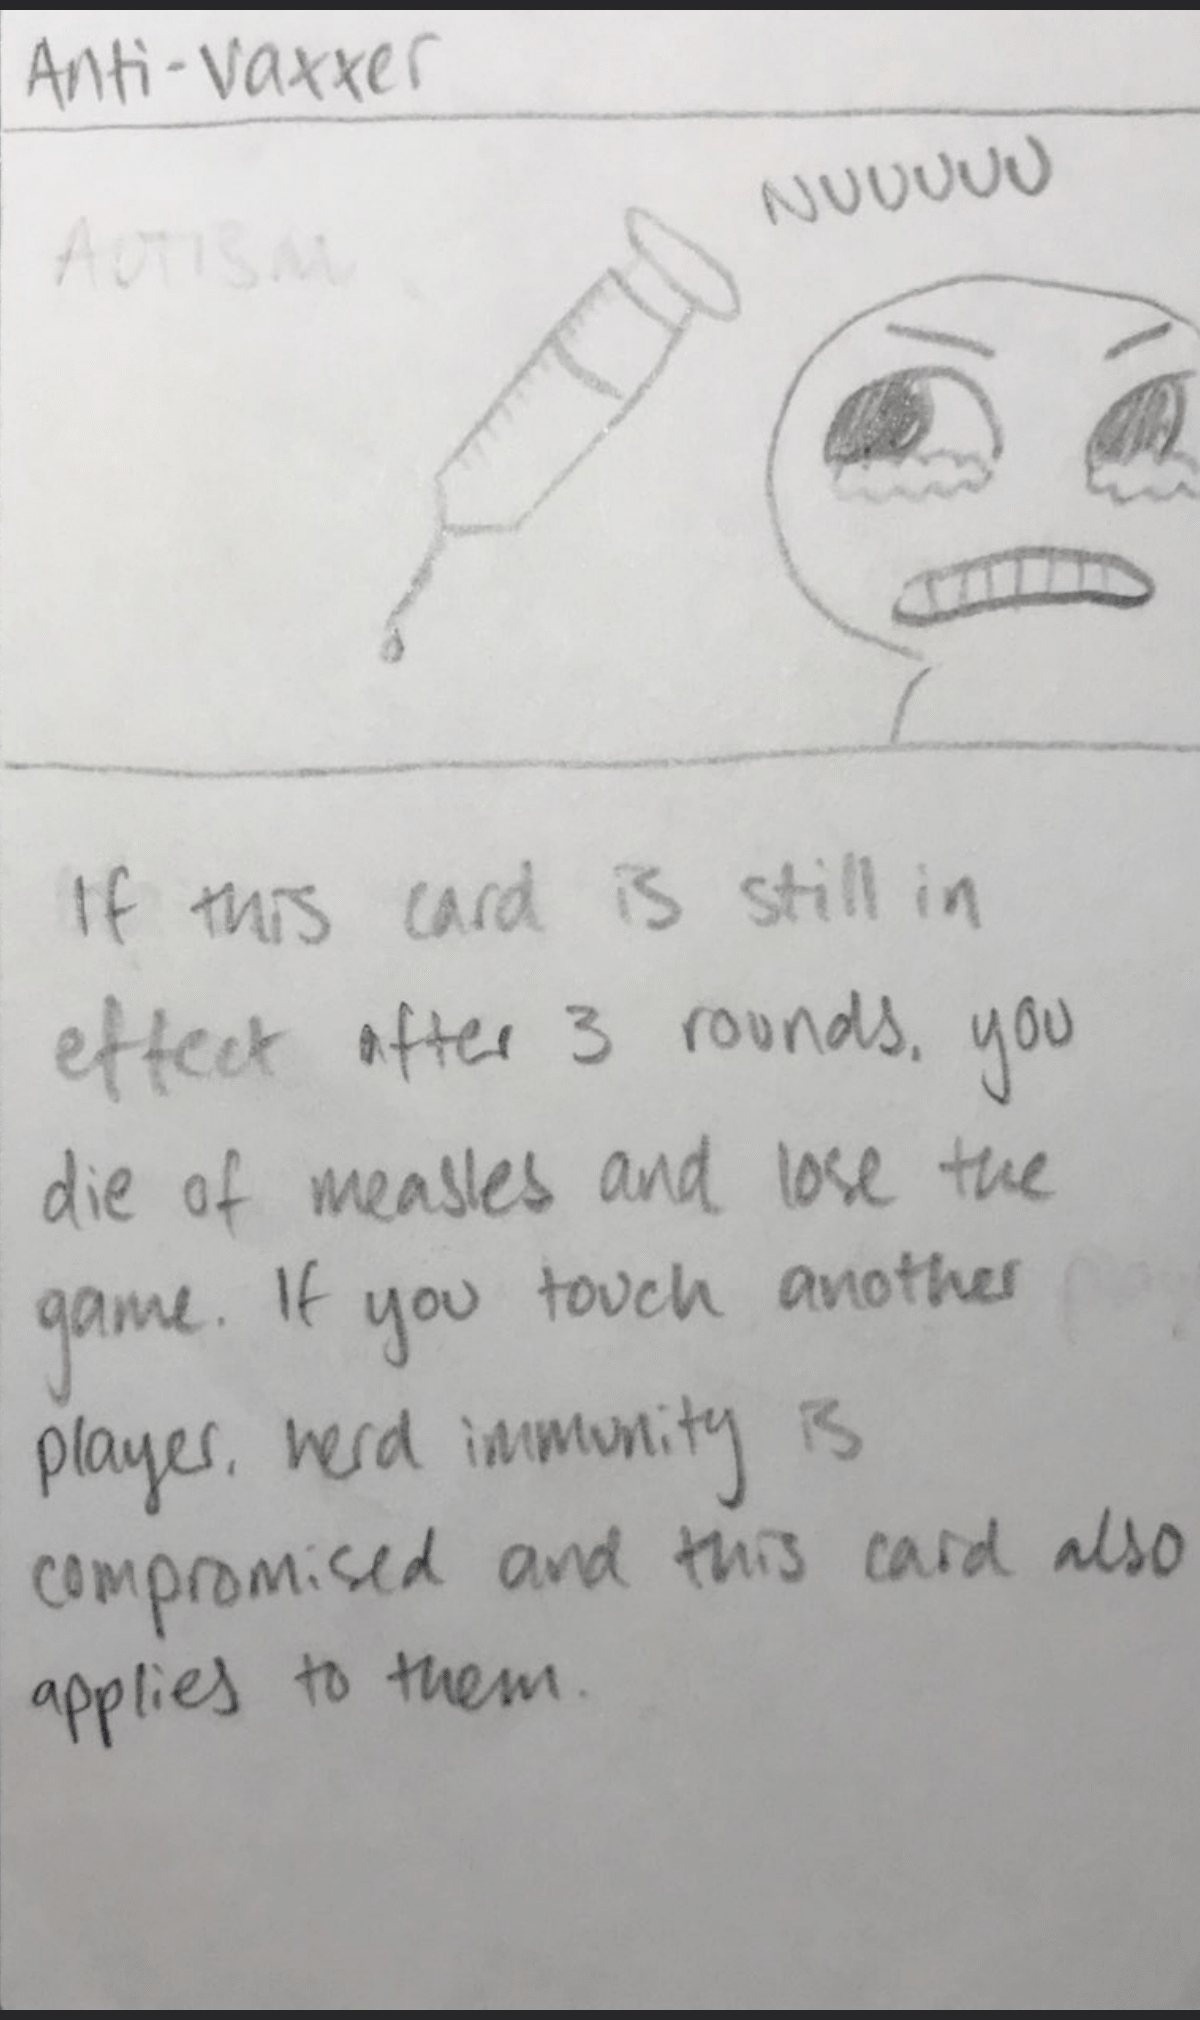 Anti-Vaxxer
NUUUUU
AUTISM
If this card is still in
effect after 3 rounds, you
die of measles and lose the
game. If you touch another
player, herd immunity is
compromised and this card also
applies to them.